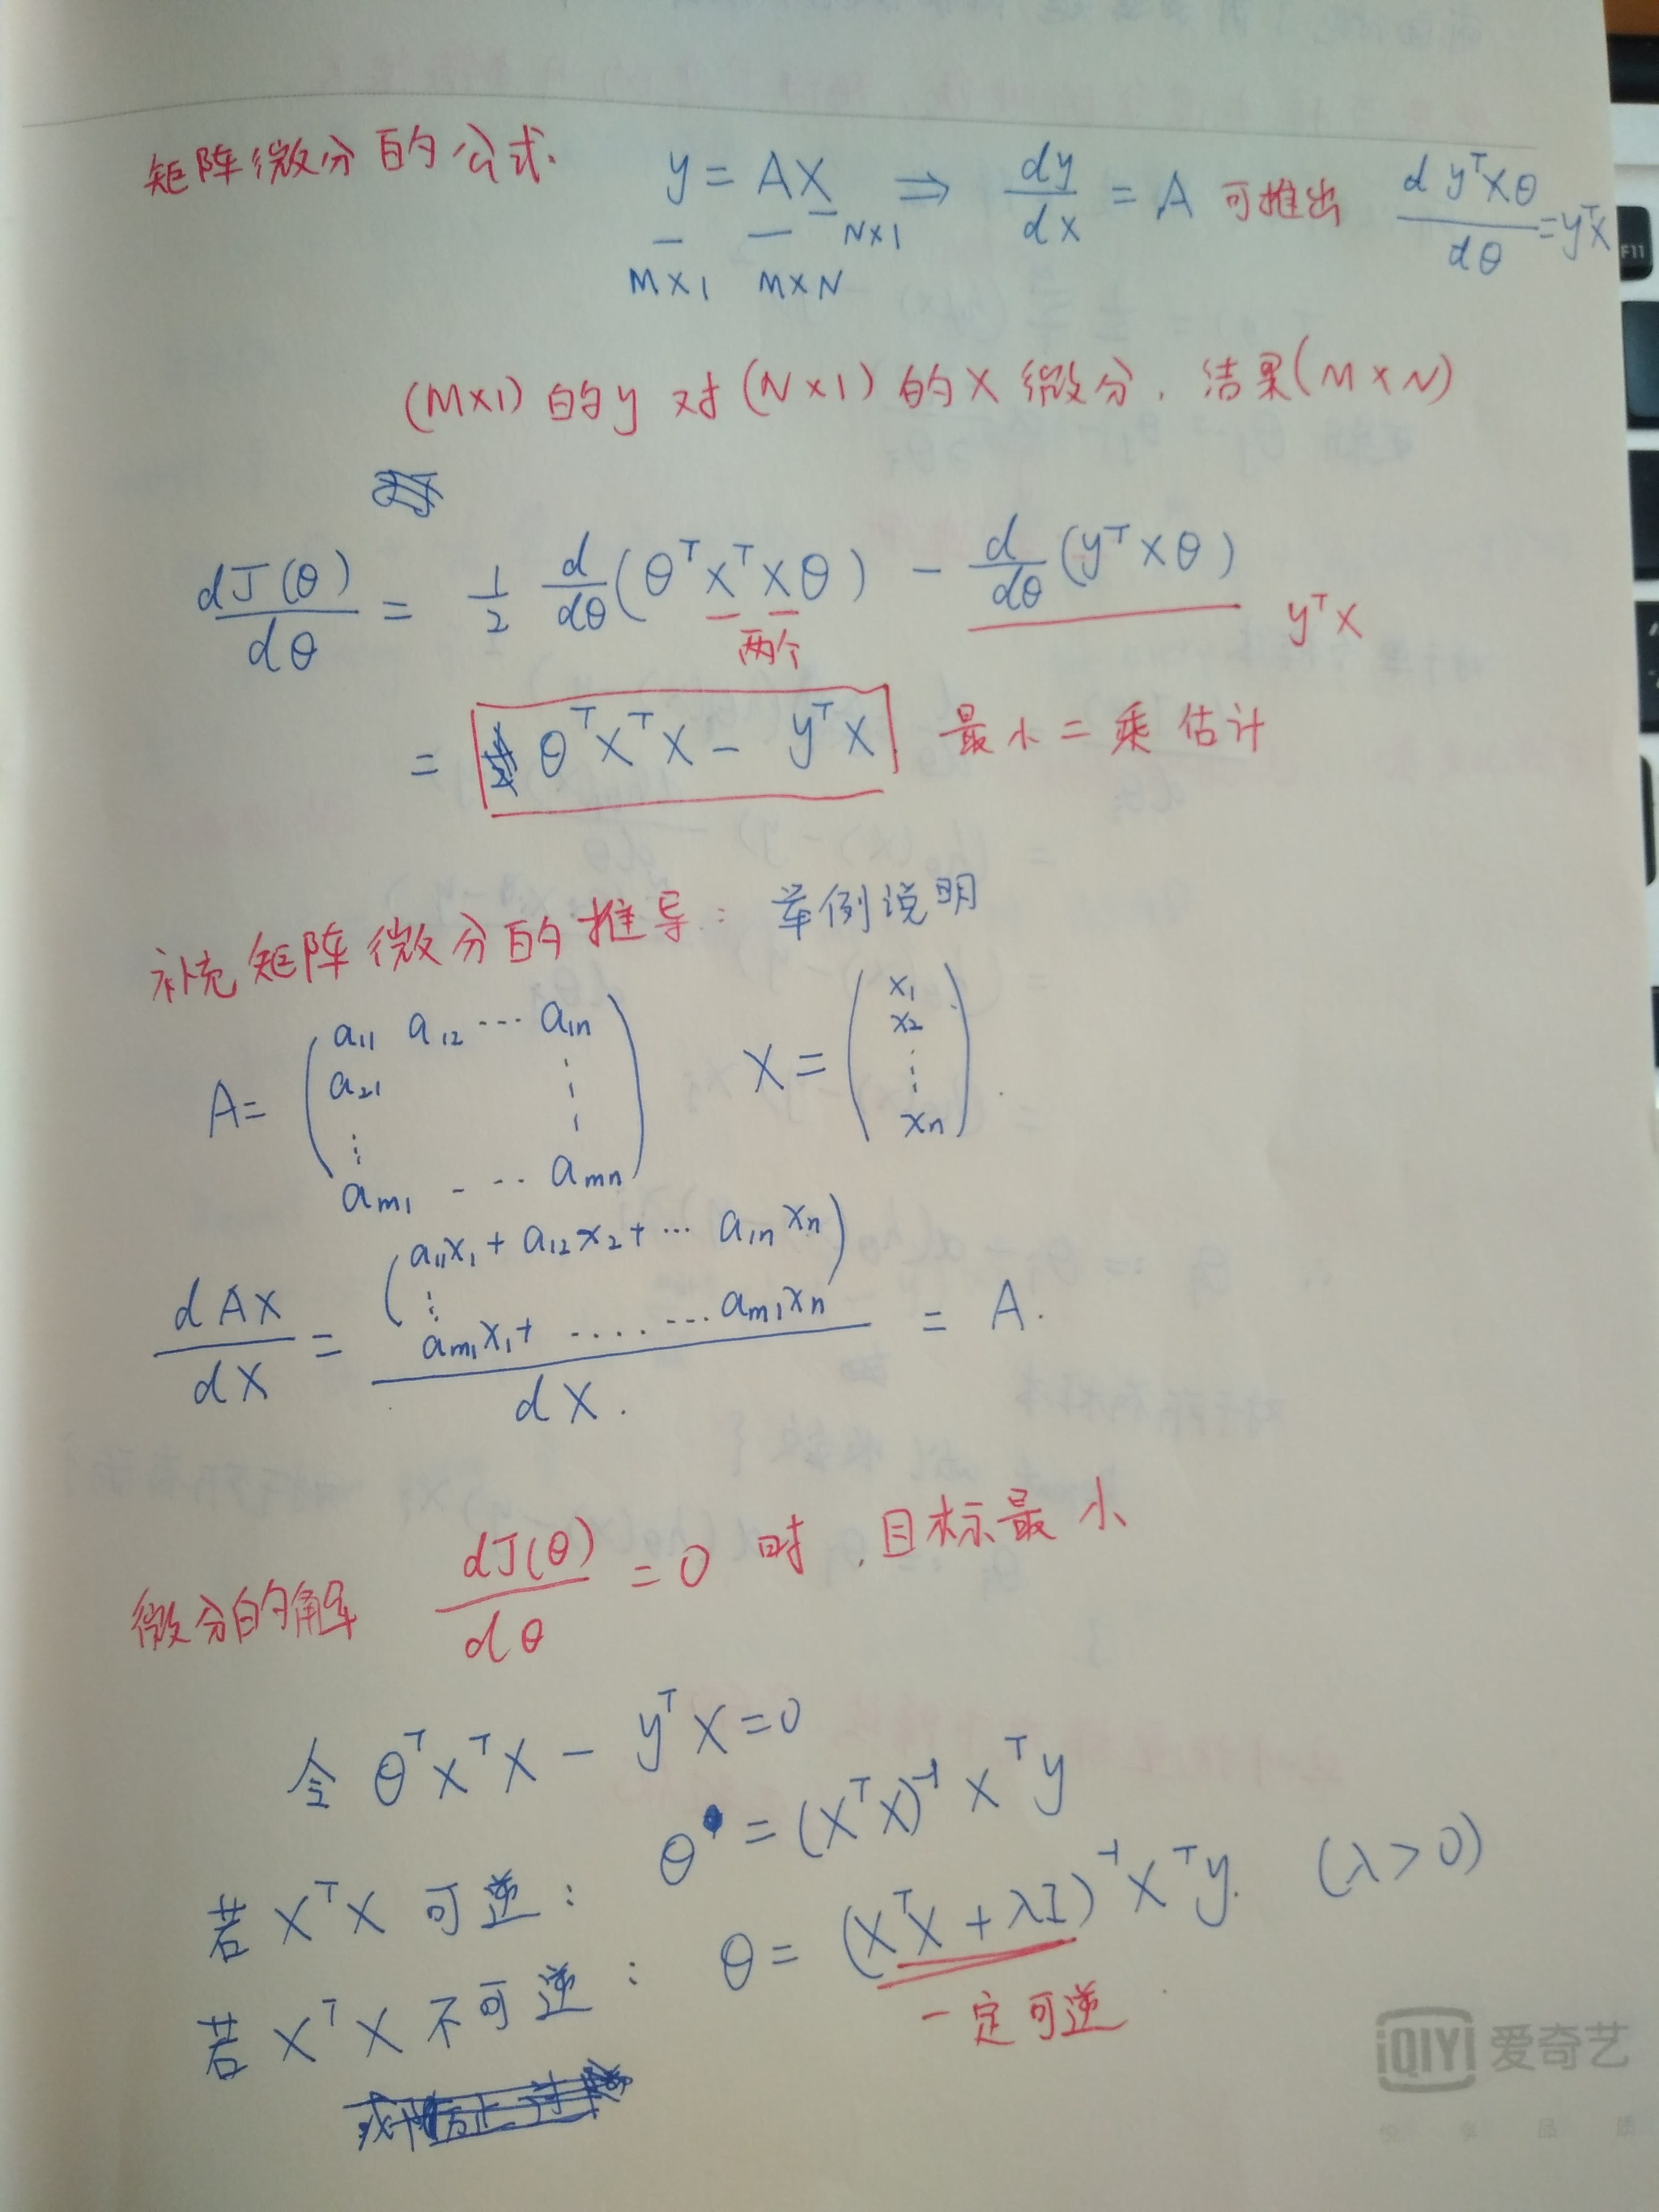 矩阵微分的公式. y = AX ⇒ dy/dx = A 可推出 d yᵀXθ/dθ = yᵀX
M×1 M×N N×1
(M×1) 的 y 对 (N×1) 的 X 微分. 结果(M×N)
dJ(θ)/dθ = 1/2 d/dθ(θᵀXᵀXθ) - d/dθ(yᵀXθ) yᵀX
两个
= θᵀXᵀX - yᵀX 最小二乘估计
补充矩阵微分的推导: 举例说明
A = ( a₁₁ a₁₂ ... a₁n
a₂₁ ⋮
⋮
am₁ - ... amn ) X = ( x₁ x₂ ⋮ xn )
dAX/dX = ( a₁₁x₁ + a₁₂x₂ + ... a₁nxn ⋮ am₁x₁ + ....... am₁xn ) / dX. = A.
微分的解 dJ(θ)/dθ = 0 时, 目标最小
令 θᵀXᵀX - yᵀX = 0
若 XᵀX 可逆: θ = (XᵀX)⁻¹Xᵀy
若 XᵀX 不可逆: θ = (XᵀX + λI)⁻¹Xᵀy. (λ>0)
一定可逆
iQIYI 爱奇艺
F11